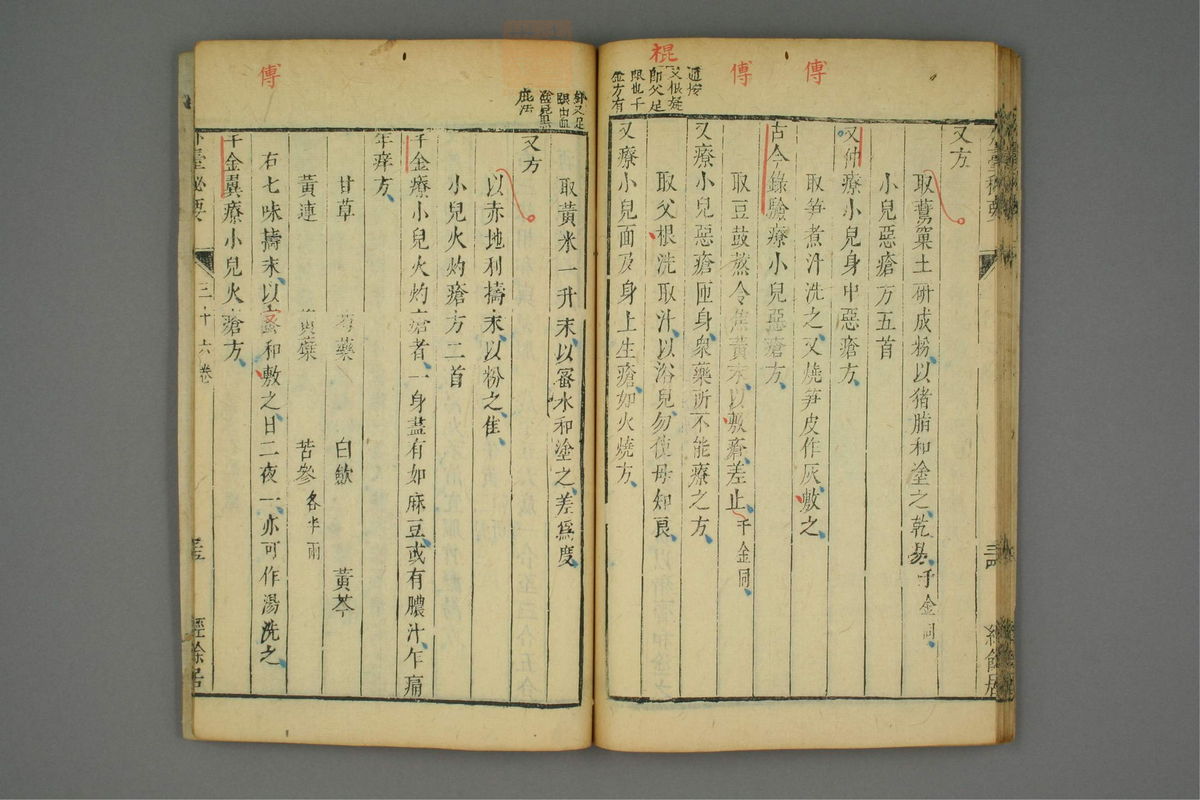 傅
傅
棍
又方
取䳡窠土研成粉以猪脂和塗之乾易千金同
小兒惡瘡方五首
又仲療小兒身中惡瘡方
取笋煮汁洗之又燒笋皮作灰敷之
古今錄驗療小兒惡瘡方
取豆豉蒸令焦黃末以敷瘡差止千金同
又療小兒惡瘡匝身衆藥所不能療之方
取父根洗取汁以浴兒勿使母知良
又療小兒面及身上生瘡如火燒方
三四
傅
取黃米一升末以蜜水和塗之差爲度
又方
以赤地利擣末以粉之佳
小兒火灼瘡方二首
千金療小兒火灼瘡者一身盡有如麻豆或有膿汁乍痛
乍癢方
甘草 芍藥 白斂 黃芩
黃連 黃蘗 苦參各半兩
右七味擣末以蜜和敷之日二夜一亦可作湯洗之
千金翼療小兒火瘡方
外臺秘要 三十六卷 三五 經餘居